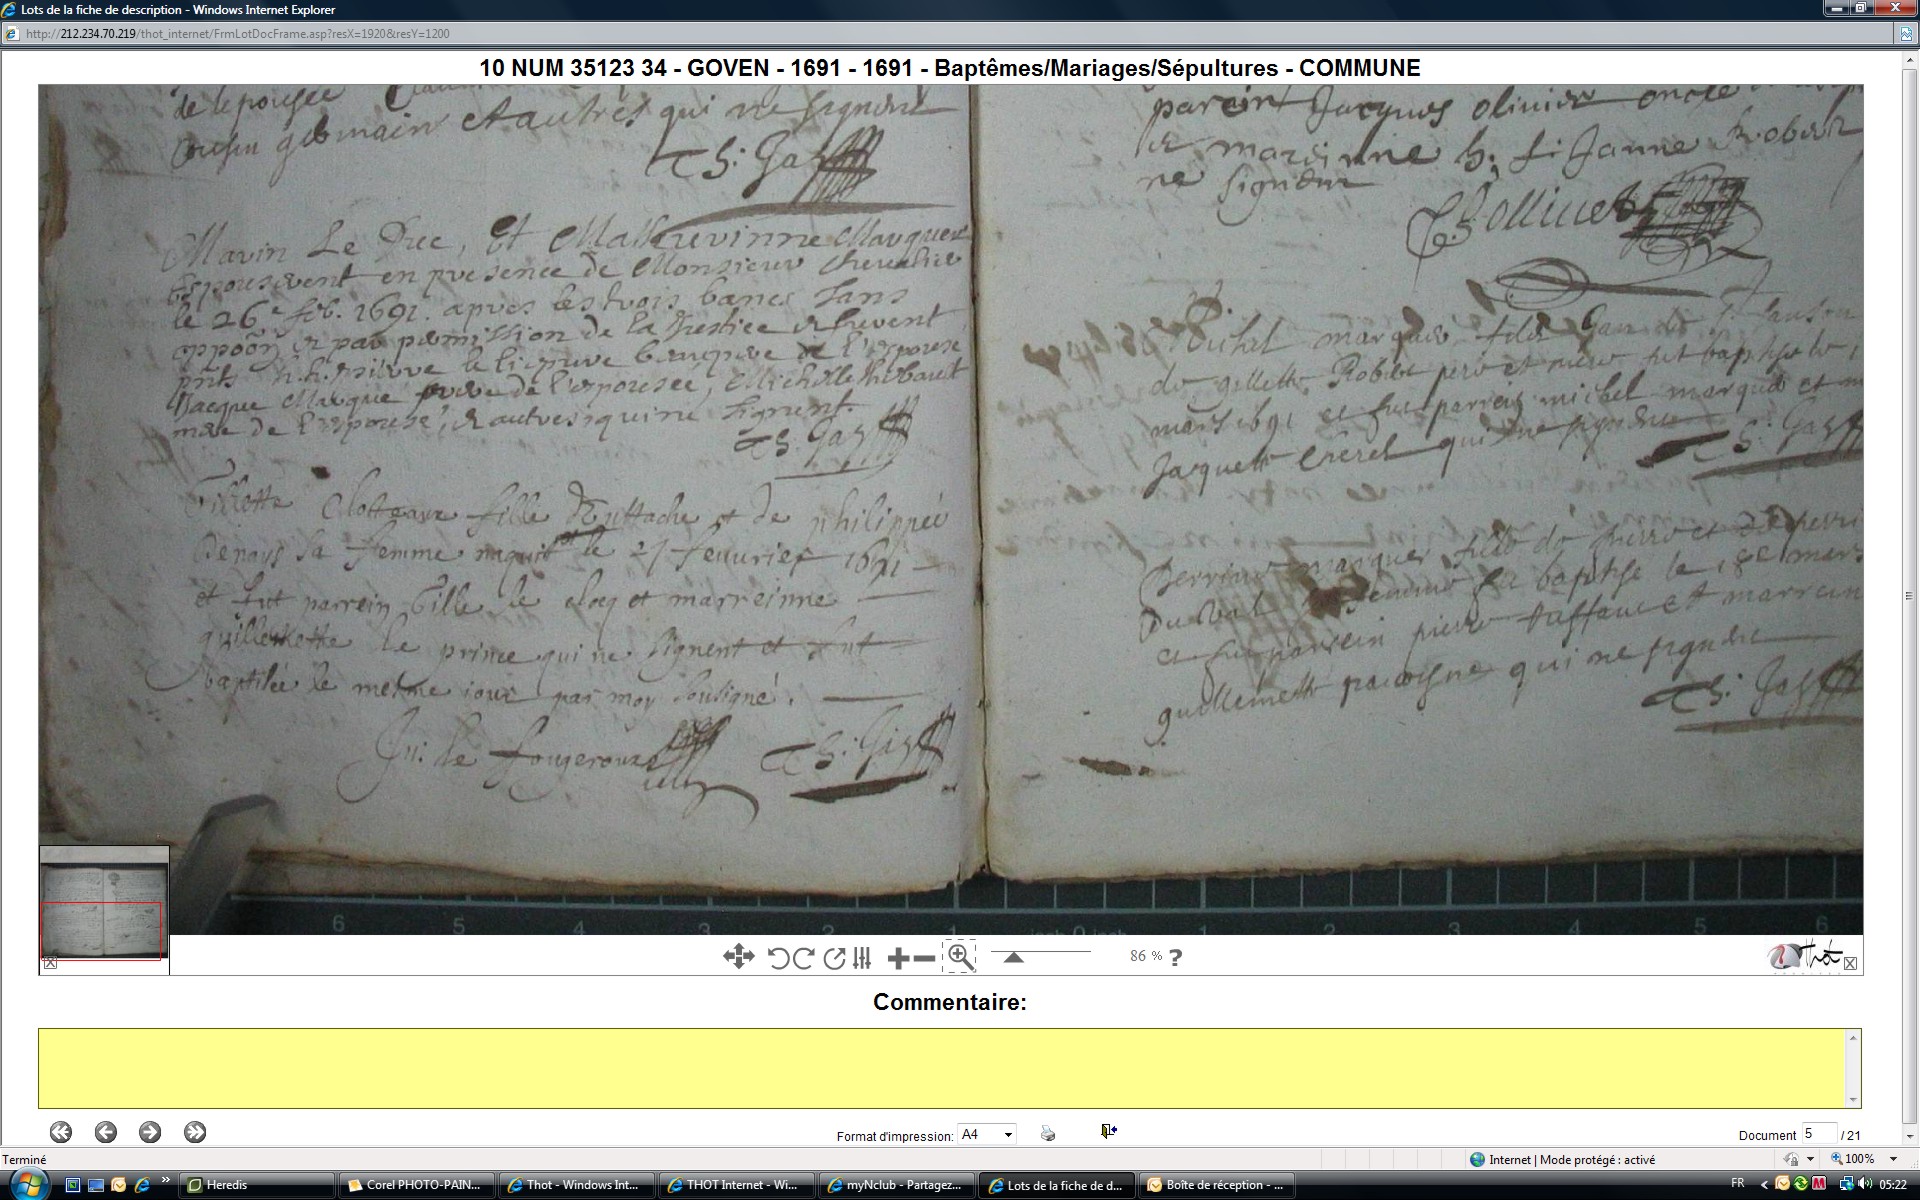 Lots de la fiche de description - Windows Internet Explorer
http://212.234.70.219/thot_internet/FrmLotDocFrame.asp?resX=1920&resY=1200
10 NUM 35123 34 - GOVEN - 1691 - 1691 - Baptêmes/Mariages/Sépultures - COMMUNE
de lepousée
cousin germain et autres qui ne signent
Th: Ga
Marin Le Duc, Et Mathurinne Marquer
Esporesrent en presence de Monsieur Chevalier
le 26e feb. 1691. apres les trois bancs sans
oppoōn et par permission de la Justice & furent
pnts h.h. pierre le lieprure beaupere de l'esporese
Jacque Marque frere de l'esporesee, Michelle thibault
mere de l'esporese, & autres qui ne signent.
Th: Ga
Gillette Clotteaux fille d'Eustache et de philippes
Denays sa femme naquit le 27 feuurier 1691
et fut parrein Gille le cloq et marreinne
guillemette le prince qui ne signent et fut
baptisée le mesme iour par moy soubsigné.
Ju: de fougeroux
Th: Ga
parein Jacques olivier oncle
et mareinne h. fi Janne Robert
ne signent
Collinet
Vital marquer fils Jan de
de gillette Robert pere et mere fut baptise le
mars 1691 et fut parrein michel marquer et m
Jacquette Cherel qui ne signent
Th: Ga
Perrine marquer fille de pierre et de perri
Duval femme fut baptise le 18e mars
et fut parrein pierre taffau et marrein
guillemette qui ne signent
Th: Ga
6 5 4 3 2 1 inch 0 inch 1 2 3 4 5 6
86 % ?
Thot
Commentaire:
Format d'impression: A4
Document 5 / 21
Terminé
Internet | Mode protégé : activé
100%
Heredis
Corel PHOTO-PAIN...
Thot - Windows Int...
THOT Internet - Wi...
myNclub - Partagez...
Lots de la fiche de d...
Boîte de réception - ...
FR
05:22